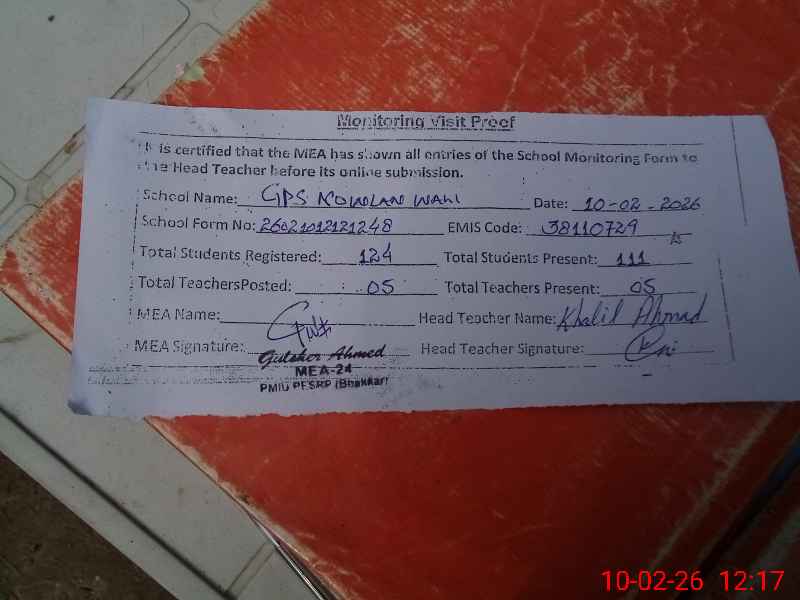 Monitoring Visit Proof
It is certified that the MEA has shown all entries of the School Monitoring Form to
the Head Teacher before its online submission.
School Name: GPS NOWLAN WALI Date: 10-02-2026
School Form No: 26021012121248 EMIS Code: 38110729
Total Students Registered: 124 Total Students Present: 111
Total TeachersPosted: 05 Total Teachers Present: 05
MEA Name: Head Teacher Name: Khalil Ahmad
MEA Signature: Head Teacher Signature:
Gulsher Ahmed
MEA-24
PMIU PESRP (Bhakkar)
10-02-26 12:17